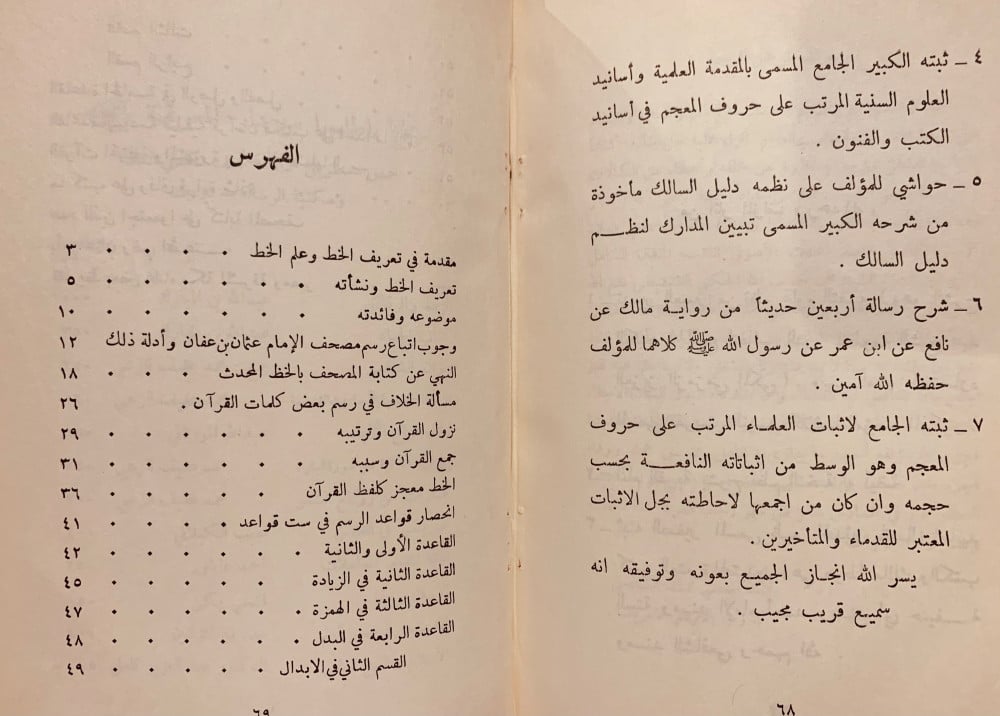 ٤ ـ ثبته الكبير الجامع المسمى بالمقدمة العلمية وأسانيد
العلوم السنية المرتب على حروف المعجم في أسانيد
الكتب والفنون .
٥ ـ حواشي للمؤلف على نظمه دليل السالك مأخوذة
من شرحه الكبير المسمى تبيين المدارك لنظم
دليل السالك .
٦ ـ شرح رسالة أربعين حديثاً من رواية مالك عن
نافع عن ابن عمر عن رسول الله ﷺ كلاهما للمؤلف
حفظه الله آمين .
٧ ـ ثبته الجامع لاثبات العلماء المرتب على حروف
المعجم وهو الوسط من اثباتاته النافعة بحسب
حجمه وان كان من اجمعها لاحاطته بجل الاثبات
المعتبر للقدماء والمتأخيرين .
يسر الله انجاز الجميع بعونه وتوفيقه انه
سميع قريب مجيب .
٦٨
الفهرس
مقدمة في تعريف الخط وعلم الخط . . . . ٣
تعريف الخط ونشأته . . . . . . ٥
موضوعه وفائدته . . . . . . ١٠
وجوب اتباع رسم مصحف الإمام عثمان بن عفان وأدلة ذلك ١٢
النهي عن كتابة المصحف بالخط المحدث . . . ١٨
مسألة الخلاف في رسم بعض كلمات القرآن . ٢٦
نزول القرآن وترتيبه . . . . . . ٢٩
جمع القرآن وسببه . . . . . . ٣١
الخط معجز كلفظ القرآن . . . . . ٣٦
انحصار قواعد الرسم في ست قواعد . . . . ٤١
القاعدة الأولى والثانية . . . . . . ٤٢
القاعدة الثانية في الزيادة . . . . . ٤٥
القاعدة الثالثة في الهمزة . . . . . ٤٧
القاعدة الرابعة في البدل . . . . . . ٤٨
القسم الثاني في الابدال . . . . . ٤٩
٦٩